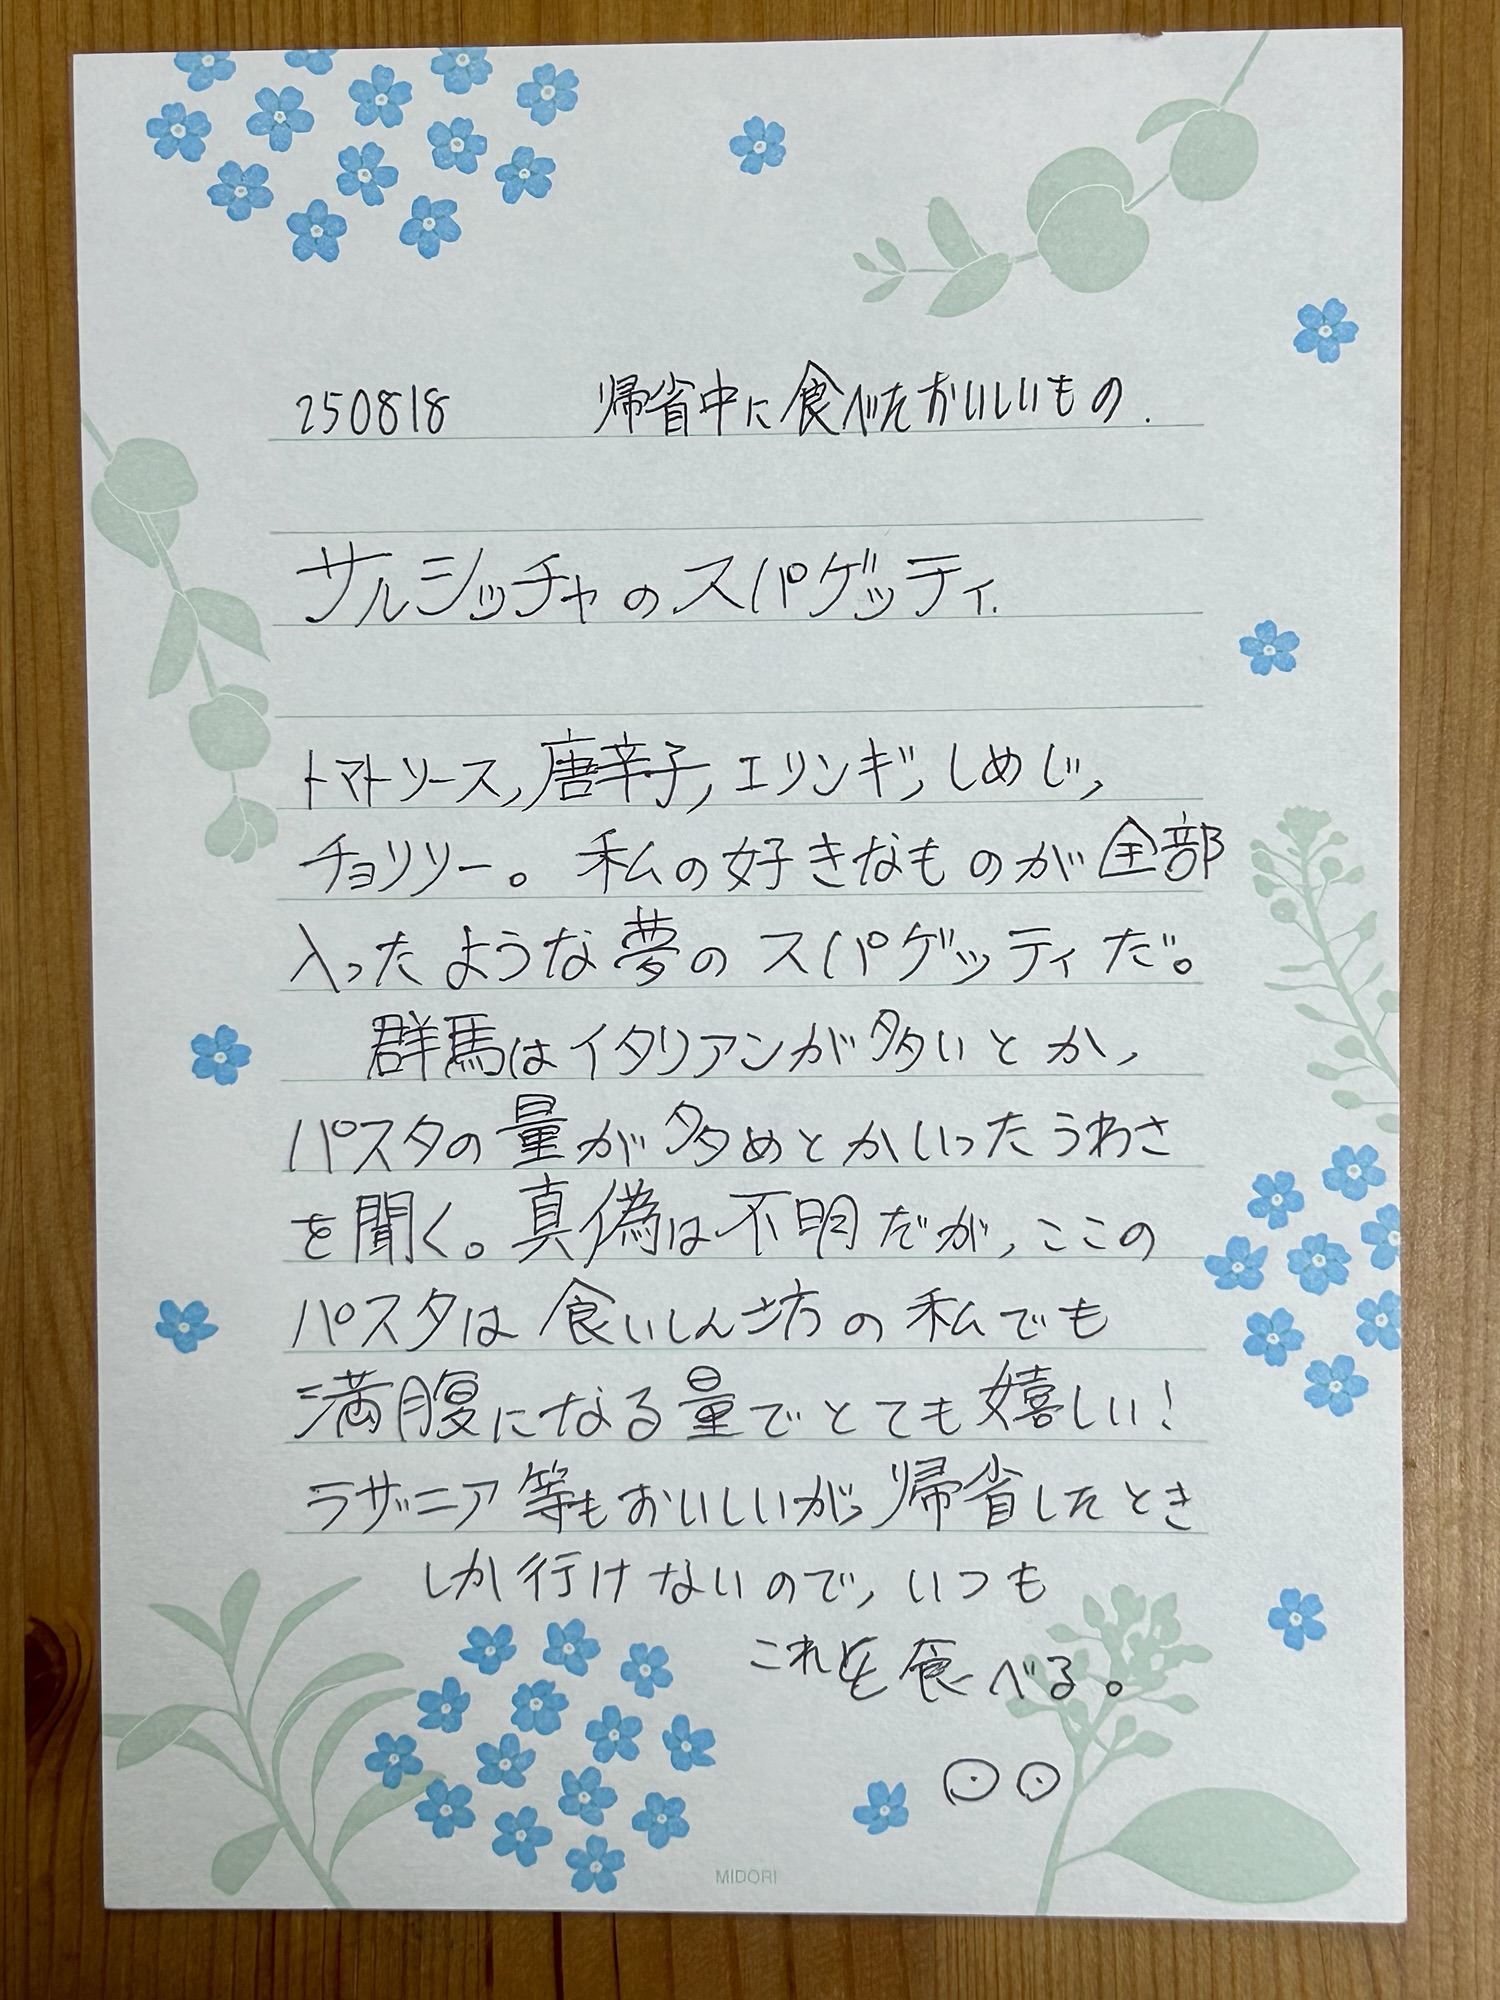 250818 帰省中に食べたおいしいもの.
サルシッチャのスパゲッティ.
トマトソース,唐辛子,エリンギ,しめじ,
チョリソー。私の好きなものが全部
入ったような夢のスパゲッティだ。
群馬はイタリアンが多いとか,
パスタの量が多めとかいったうわさ
を聞く。真偽は不明だが,ここの
パスタは食いしん坊の私でも
満腹になる量でとても嬉しい!
ラザニア等もおいしいが,帰省したとき
しか行けないので,いつも
これを食べる。
MIDORI